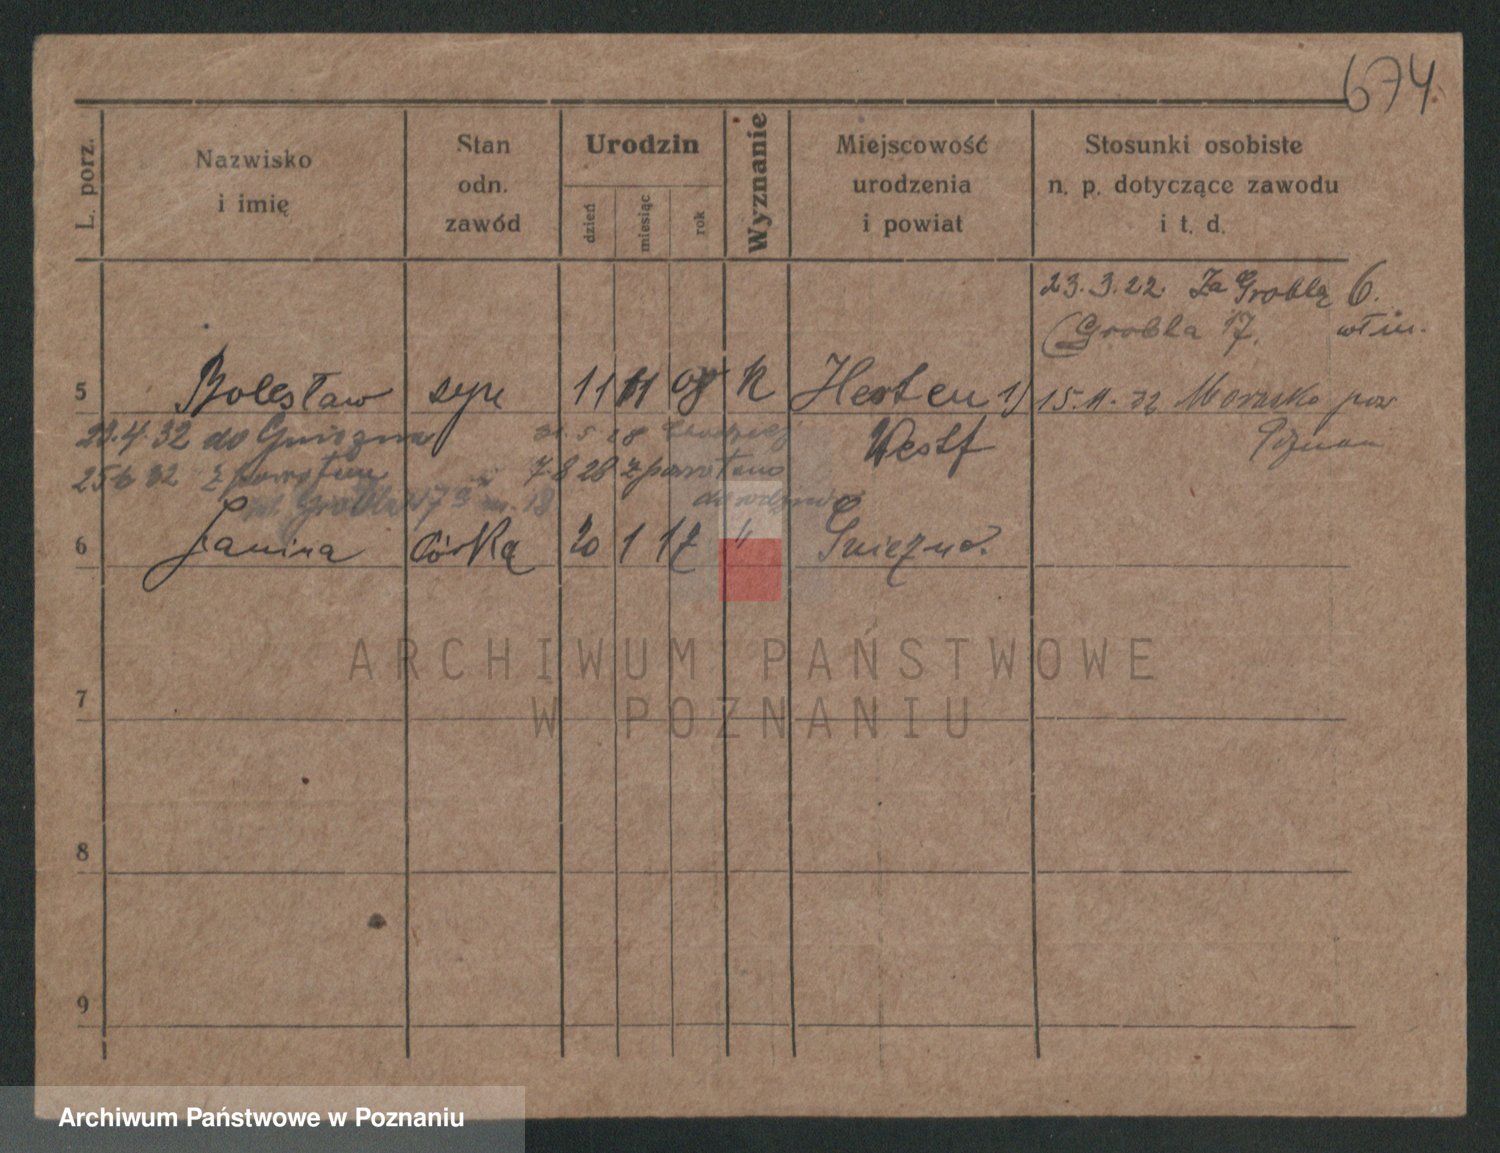 674.
L. porz.
Nazwisko
i imię
Stan
odn.
zawód
Urodzin
dzień
miesiąc
rok
Wyznanie
Miejscowość
urodzenia
i powiat
Stosunki osobiste
n. p. dotyczące zawodu
i t. d.
23.3.22. Za Groblą 6.
(Grobla 17.
5 Bolesław syn 11 11 08 K Herten 1) 15.11.32 Morasko pow
Poznań
23.4.32 do Gniezna
Westf
25.6.32 z powrotem
7.8.28 z powrotem
Grobla
6 Janina córka 20 1 17 " Gniezno.
ARCHIWUM PAŃSTWOWE
W POZNANIU
7
8
9
Archiwum Państwowe w Poznaniu